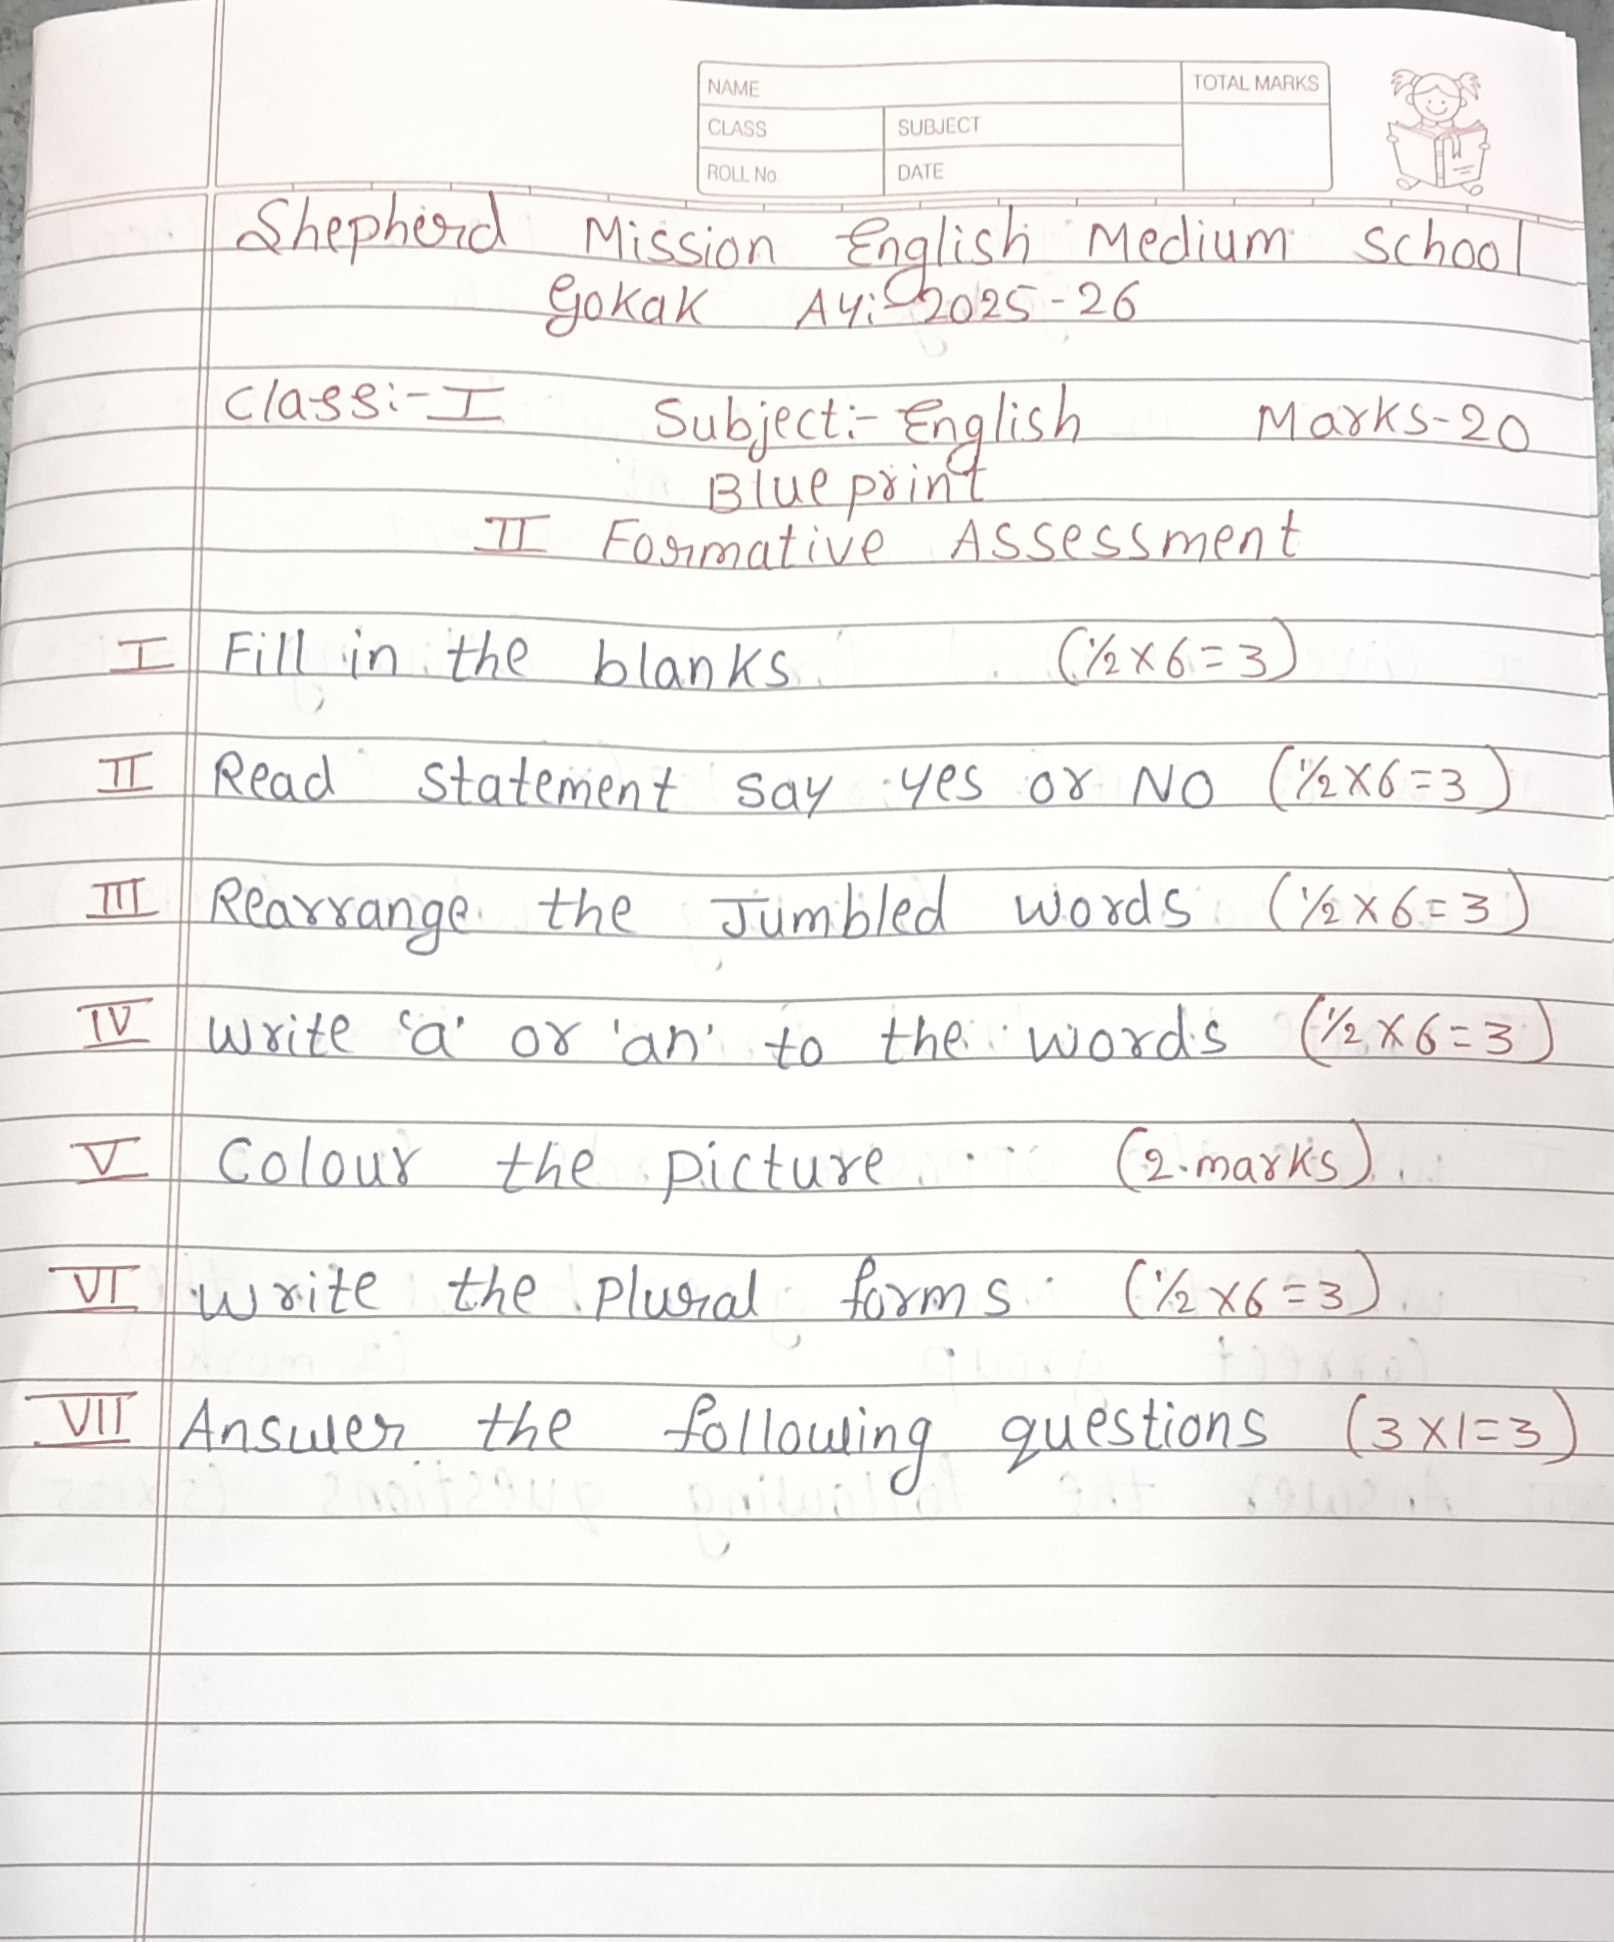 NAME
TOTAL MARKS
CLASS
SUBJECT
ROLL No.
DATE
Shepherd Mission English Medium School
Gokak AY:- 2025-26
Class:- I Subject:- English Marks-20
Blue print
II Formative Assessment
I Fill in the blanks (1/2 x 6 = 3)
II Read statement say yes or NO (1/2 x 6 = 3)
III Rearrange the Jumbled words (1/2 x 6 = 3)
IV Write 'a' or 'an' to the words (1/2 x 6 = 3)
V Colour the picture (2 marks)
VI Write the plural forms (1/2 x 6 = 3)
VII Answer the following questions (3 x 1 = 3)